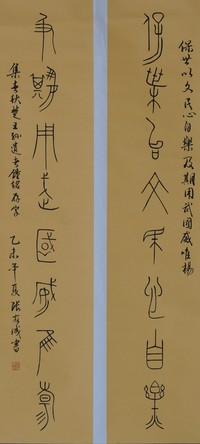 保世以文民心自樂及期用武國威唯揚
保世以文民心自樂
及期用武國威唯揚
集春秋楚王孫遺者鐘銘存字
乙未年夏張
書